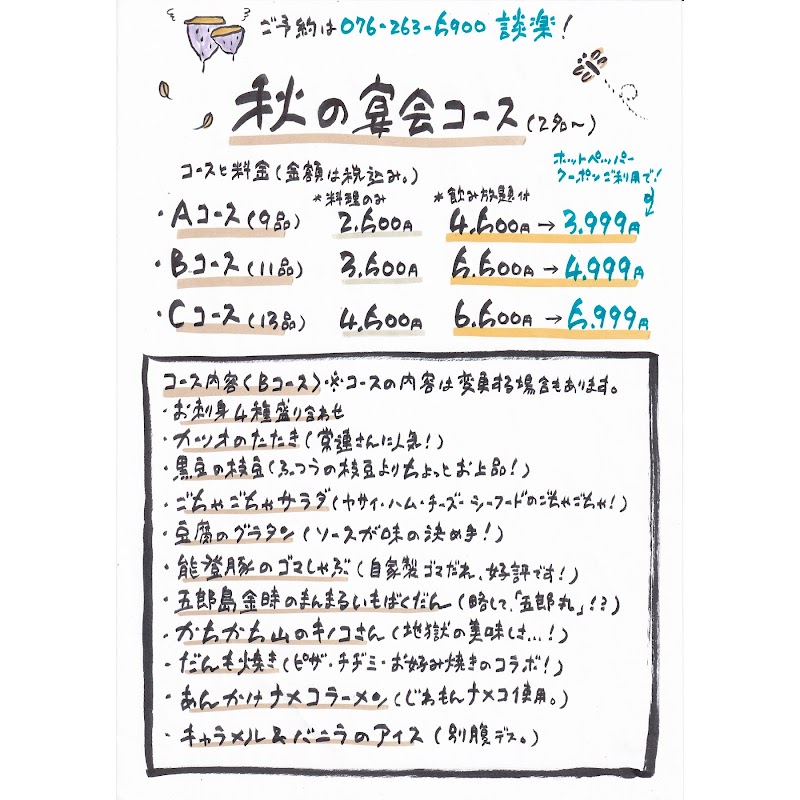 ご予約は076-263-5900 談楽!
秋の宴会コース(2名~)
コースと料金(金額は税込み。)
ホットペッパー
クーポンご利用で!
*料理のみ *飲み放題付
・Aコース(9品) 2.500円 4.500円→3.999円
・Bコース(11品) 3.500円 5.500円→4.999円
・Cコース(13品) 4.500円 6.500円→5.999円
コース内容(Bコース)・※コースの内容は変更する場合もあります。
・お刺身4種盛り合わせ
・カツオのたたき(常連さんに人気!)
・黒豆の枝豆(ふつうの枝豆よりちょっとお上品!)
・ごちゃごちゃサラダ(ヤサイ・ハム・チーズ・シーフードのごちゃごちゃ!)
・豆腐のグラタン(ソースが味の決め手!)
・能登豚のゴマしゃぶ(自家製ゴマだれ、好評です!)
・五郎島金時のまんまるいもばくだん(略して、「五郎丸」!?)
・かちかち山のキノコさん(地獄の美味しさ...!)
・だんも焼き(ピザ・チヂミ・お好み焼きのコラボ!)
・あんかけナメコラーメン(じわもんナメコ使用。)
・キャラメル&バニラのアイス(別腹デス。)